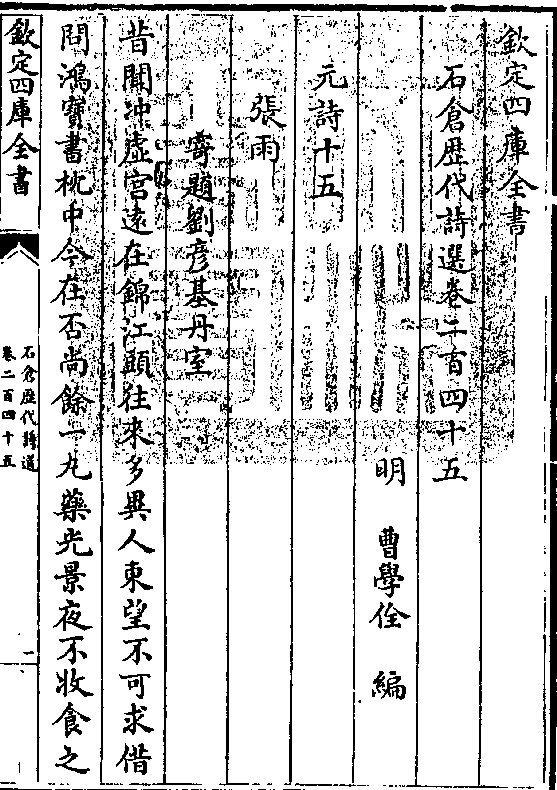 欽定四庫全書
石倉歴代詩選卷二百四十五
明 曹學佺 編
元詩十五
張雨
寄題劉彦基丹室
昔聞冲虚宫逺在錦江頭往來多異人東望不可求借
問鴻寳書枕中今在否尚餘一丸藥光景夜不收食之
欽定四庫全書
石倉歴代詩選
卷二百四十五
一